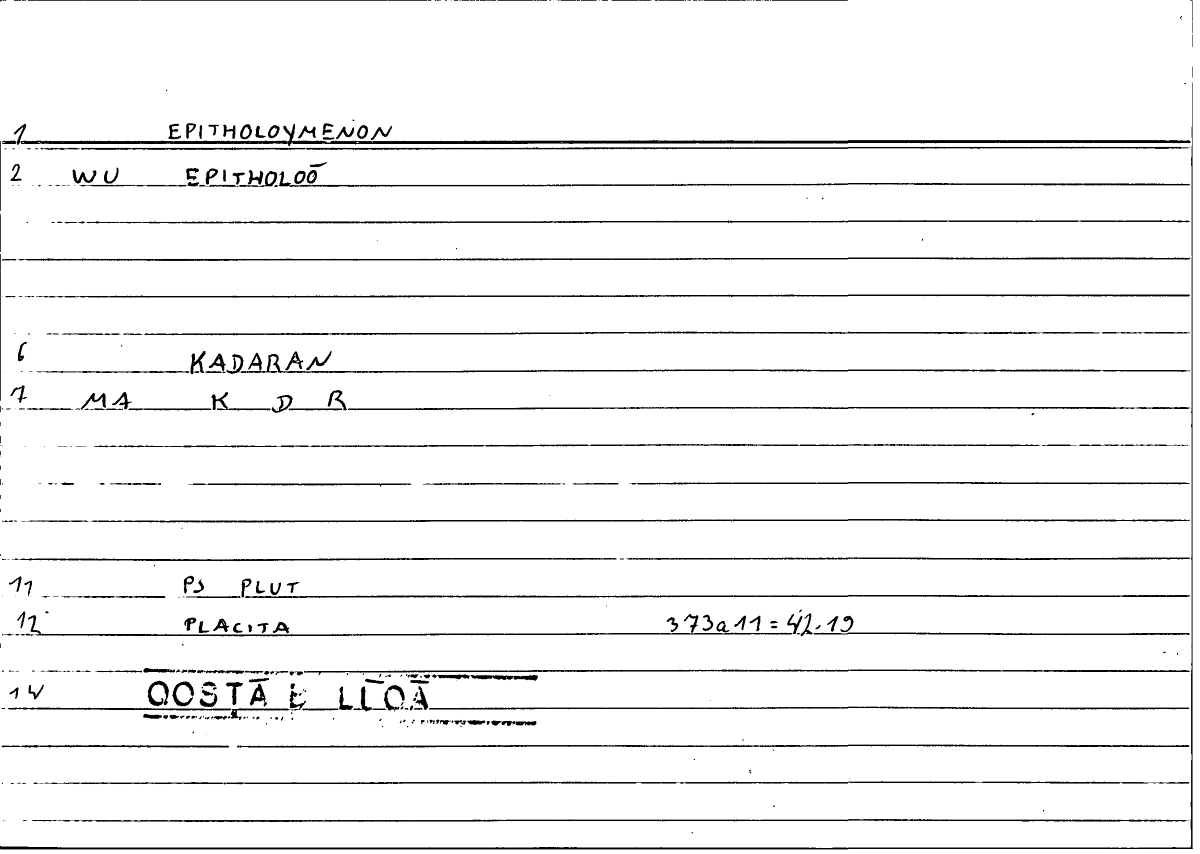 1 EPITHOLOYMENON
2 WU EPITHOLOŌ
6 KADARAN
7 MA K D R
11 PS PLUT
12 PLACITA 373a11=42.19
14 QOSṬĀ B LŪQĀ